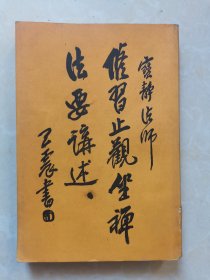 寶靜法師
修習止觀坐禪
法要講述。